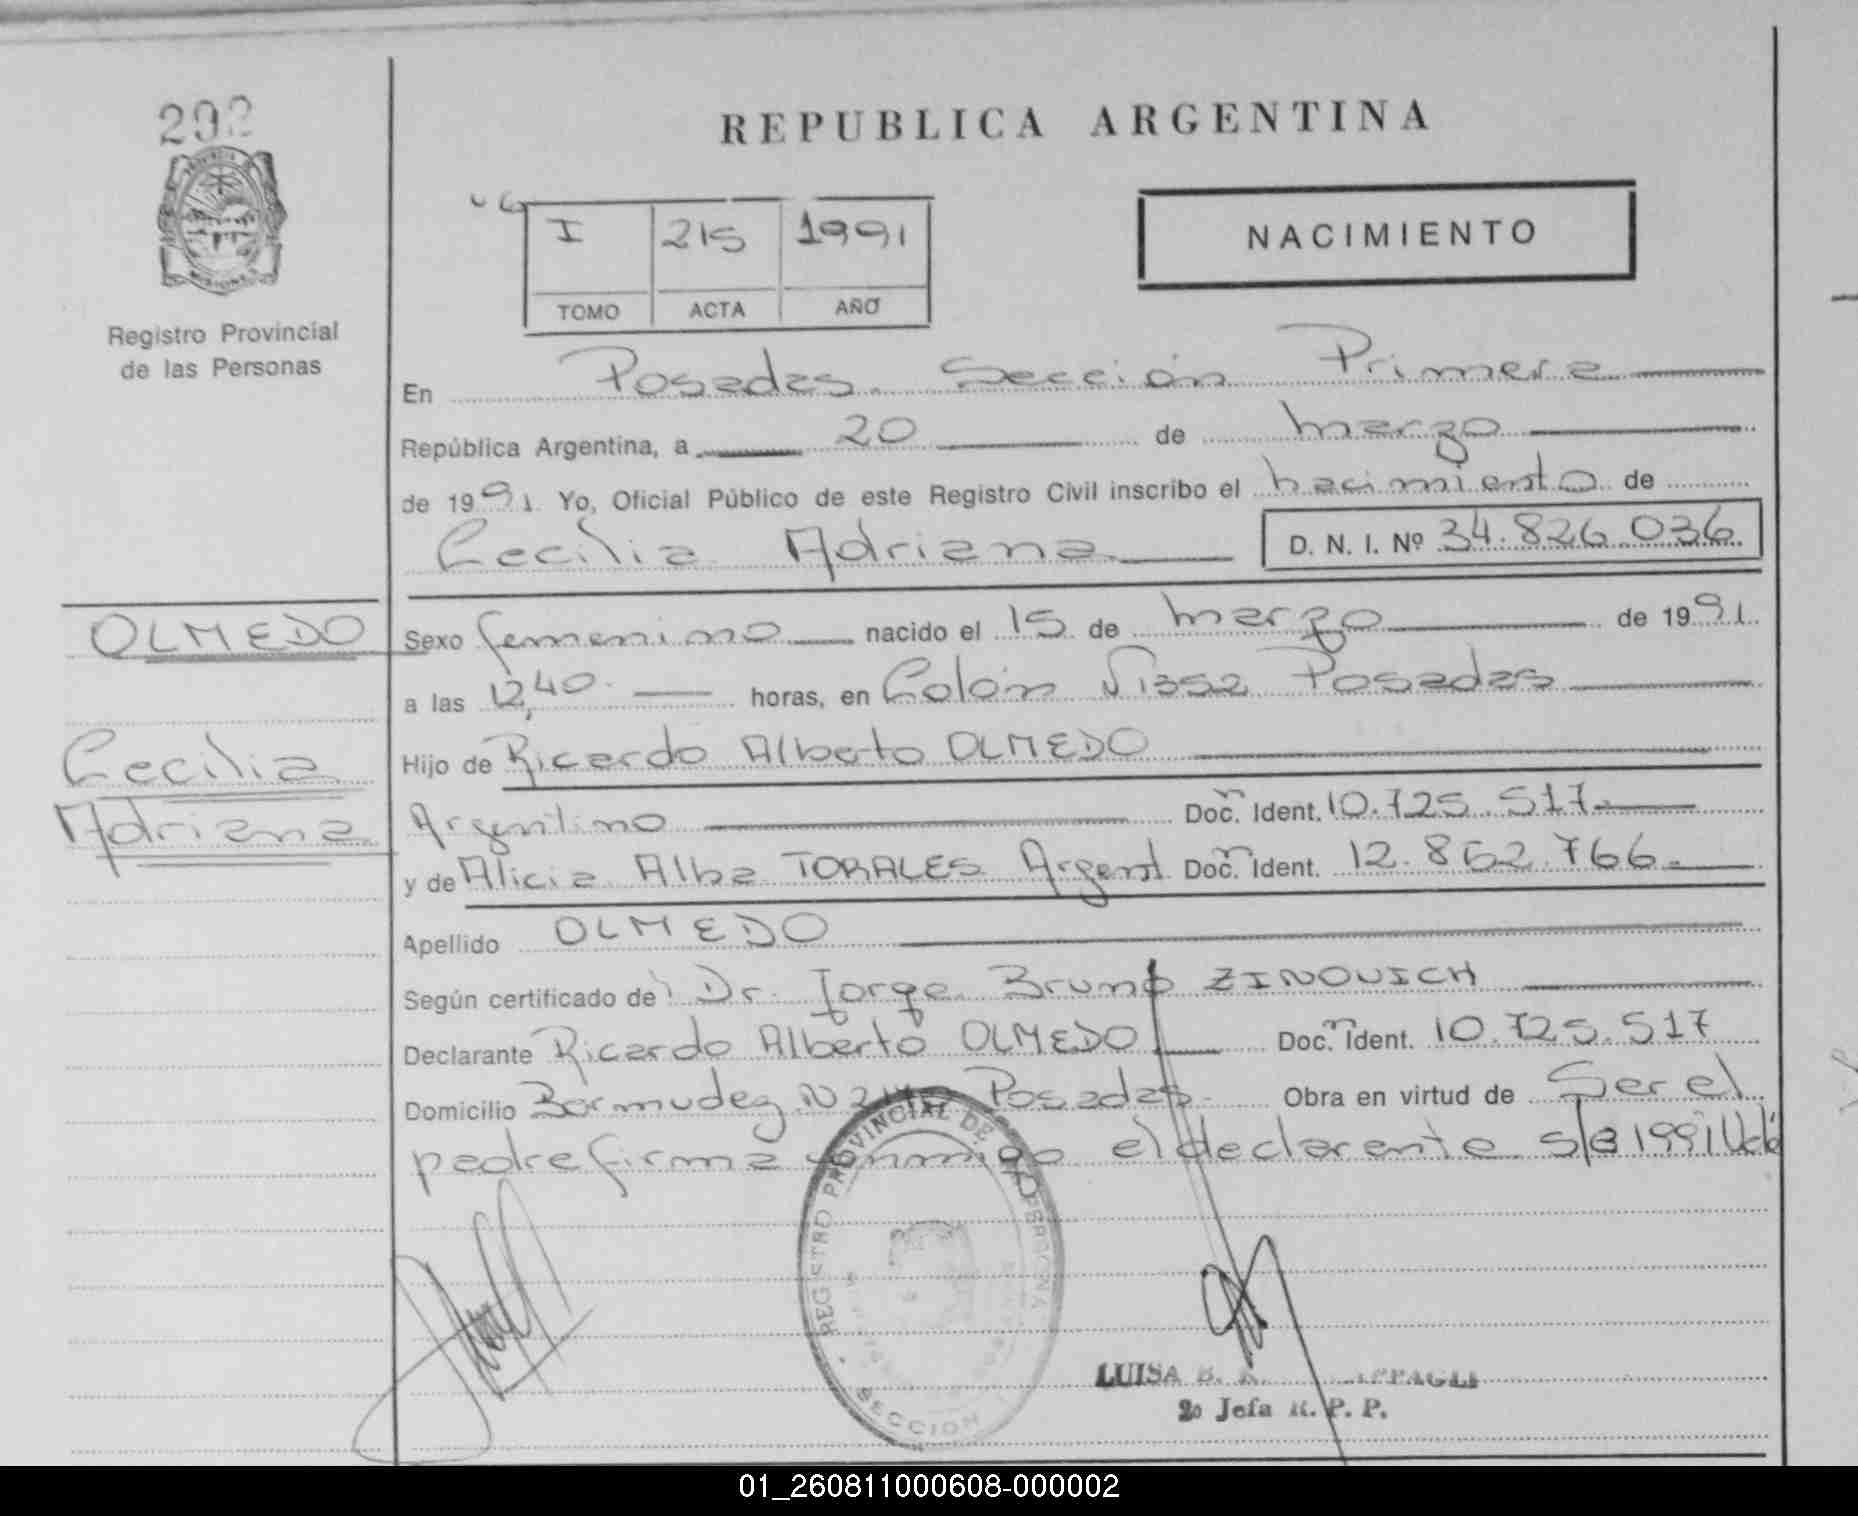 292
REPUBLICA ARGENTINA
I 215 1991
TOMO ACTA AÑO
NACIMIENTO
Registro Provincial
de las Personas
En Posadas Sección Primera
República Argentina, a 20 de marzo
de 1991. Yo, Oficial Público de este Registro Civil inscribo el nacimiento de
Cecilia Adriana D. N. I. Nº 34.826.036
OLMEDO
Cecilia
Adriana
Sexo femenino nacido el 15 de marzo de 1991.
a las 12,40 horas, en Colón Posadas
Hijo de Ricardo Alberto OLMEDO
Argentino Doc. Ident. 10.725.517
y de Alicia Alba TORALES Argent Doc. Ident. 12.852.766
Apellido OLMEDO
Según certificado de Dr. Jorge Bruno ZINOVICH
Declarante Ricardo Alberto OLMEDO Doc. Ident. 10.725.517
Domicilio Bermudez N Posadas. Obra en virtud de Ser el
padre firma conmigo el declarante 1991
REGISTRO PROVINCIAL DE
SECCION
LUISA B.
2º Jefa R. P. P.
01_260811000608-000002